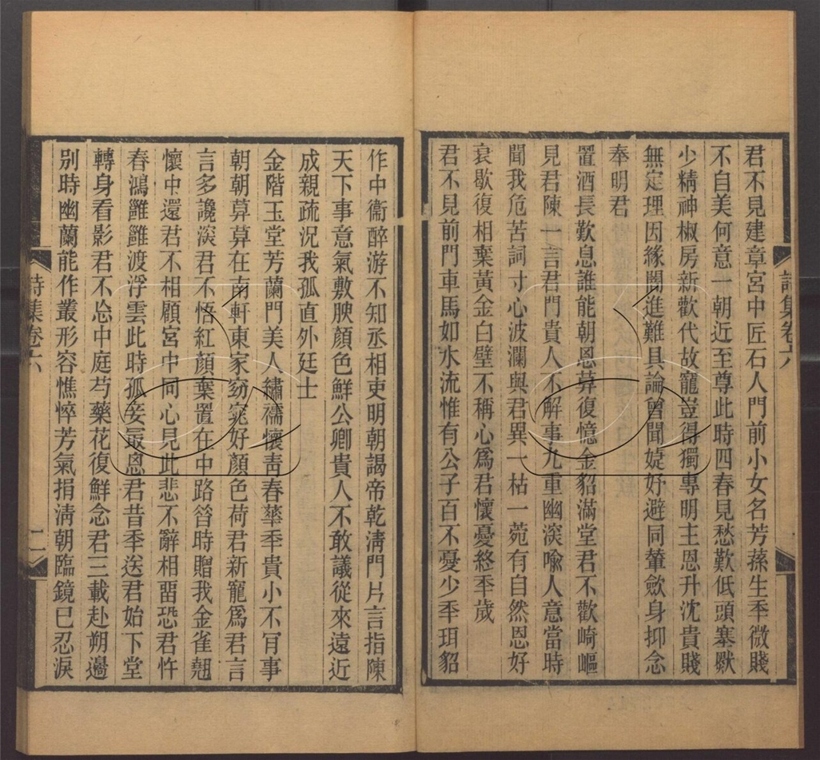 君不見建章宮中匠石人門前小女名芳蓀生秊微賤
不自美何意一朝近至尊此時四春見愁歎低頭塞厭
少精神椒房新歡代故寵豈得獨專明主恩升沈貴賤
無定理因緣闚進難具論曾聞婕妤避同輦斂身抑念
奉明君
置酒長歎息誰能朝恩莫復憶金貂滿堂君不歡崎嶇
見君陳一言君門貴人不解事九重幽湥喩人意當時
聞我危苦詞寸心波瀾與君異一枯一菀有自然恩好
衰歇復相棄黃金白璧不稱心爲君懷憂終秊歲
君不見前門車馬如水流惟有公子百不憂少秊珥貂
詩集卷六
作中衞醉游不知丞相吏明朝謁帝乾淸門片言指陳
天下事意氣敷腴顏色鮮公卿貴人不敢議從來遠近
成親疏況我孤直外廷士
金階玉堂芳蘭門美人繡襦懷靑春華秊貴小不肎事
朝朝莫莫在南軒東家窈窕好顏色荷君新寵爲君言
言多讒湥君不悟紅顏棄置在中路管時贈我金雀翹
懷中還君不相顧宮中同心見此悲不辭相畱恐君忤
春鴻雝雝渡浮雲此時孤妾最恩君昔秊送君始下堂
轉身看影君不忘中庭芍藥花復鮮念君三載赴朔邊
別時幽蘭能作叢形容憔悴芳氣捐淸朝臨鏡巳忍淚
詩集卷六
二